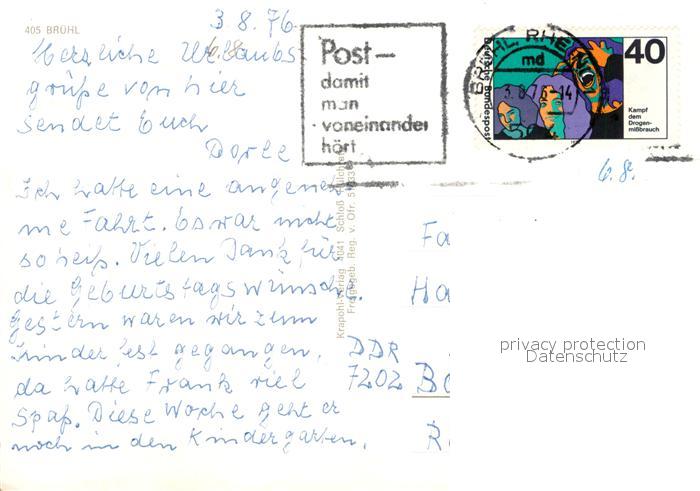 405 BRÜHL
3.8.76
Herzliche Urlaubs
grüße von hier
sendet Euch
Dorle
Ich hatte eine angeneh
me Fahrt. Es war nicht
so heiß. Vielen Dank für
die Geburtstagswünsche.
Gestern waren wir zum
Kinderfest gegangen,
da hatte Frank viel
Spaß. Diese Woche geht er
noch in den Kindergarten.
Post-
damit
man
voneinander
hört
BRÜHL, RHEINL
md
3.8.76-14
Deutsche Bundespost
40
Kampf
dem
Drogen-
mißbrauch
6.8.
6.8.
Krapohl-Verlag 4041 Schloß
Freigegeb. Reg. v. Ofr.
Fa
Ha
DDR
7202 Bo
R
privacy protection
Datenschutz